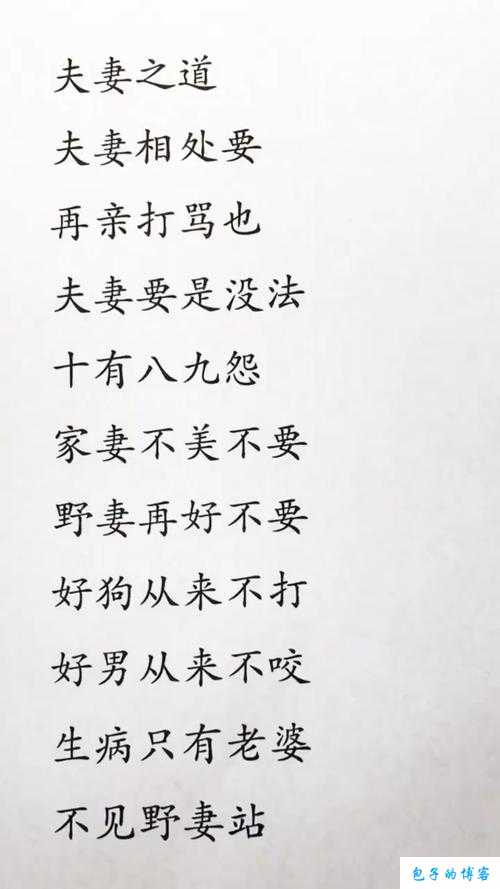 夫妻之道
夫妻相处要
再亲打骂也
夫妻要是没法
十有八九怨
家妻不美不要
野妻再好不要
好狗从来不打
好男从来不咬
生病只有老婆
不见野妻站
包子的博客